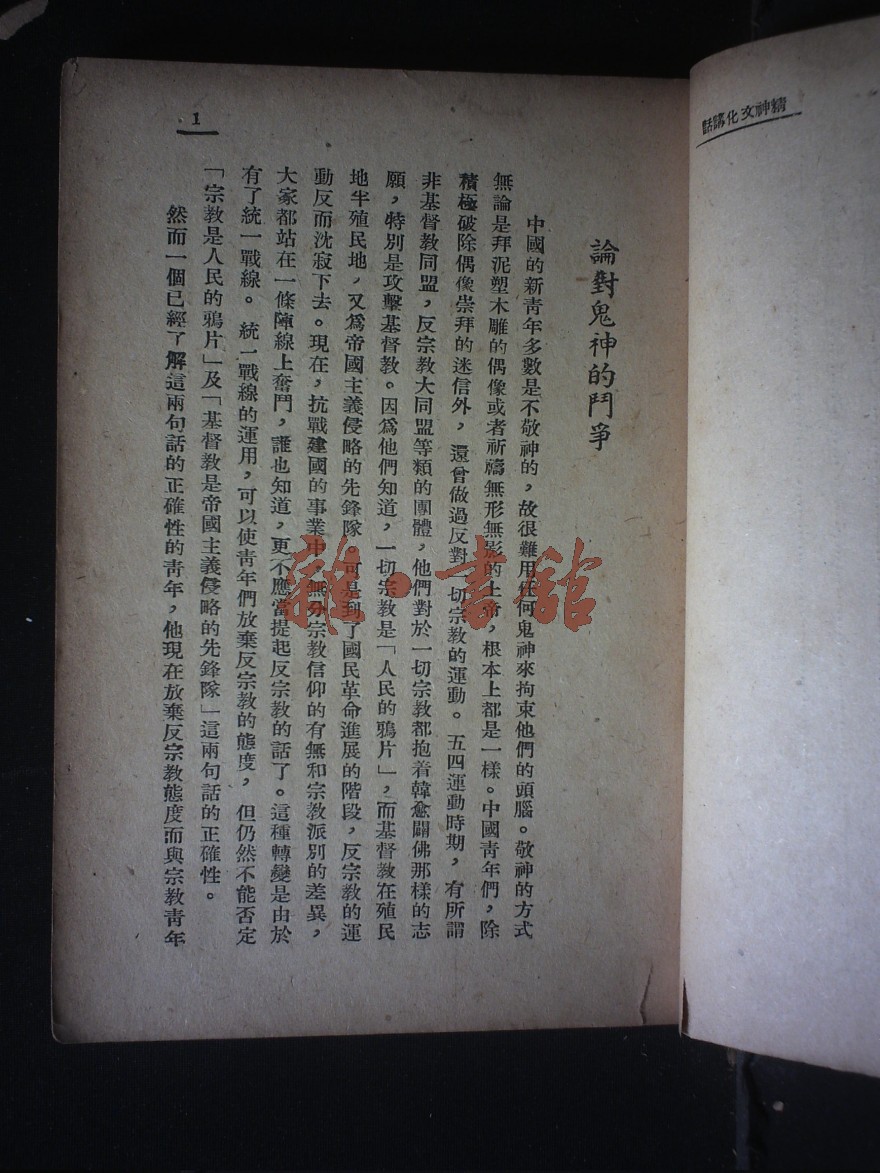 精神文化講話
論對鬼神的鬥爭
中國的新靑年多數是不敬神的，故很難用任何鬼神來拘束他們的頭腦。敬神的方式
無論是拜泥塑木雕的偶像或者祈禱無形無影的上帝，根本上都是一樣。中國靑年們，除
積極破除偶像崇拜的迷信外，還曾做過反對一切宗敎的運動。五四運動時期，有所謂
非基督敎同盟，反宗敎大同盟等類的團體，他們對於一切宗敎都抱着韓愈闢佛那樣的志
願，特別是攻擊基督敎。因爲他們知道，一切宗敎是「人民的鴉片」，而基督敎在殖民
地半殖民地，又爲帝國主義侵略的先鋒隊。可是到了國民革命進展的階段，反宗敎的運
動反而沈寂下去。現在，抗戰建國的事業中，無分宗敎信仰的有無和宗敎派別的差異，
大家都站在一條陣線上奮鬥，誰也知道，更不應當提起反宗敎的話了。這種轉變是由於
有了統一戰線。統一戰線的運用，可以使靑年們放棄反宗敎的態度，但仍然不能否定
「宗敎是人民的鴉片」及「基督敎是帝國主義侵略的先鋒隊」這兩句話的正確性。
然而一個已經了解這兩句話的正確性的靑年，他現在放棄反宗敎態度而與宗敎靑年
1
雜·書館